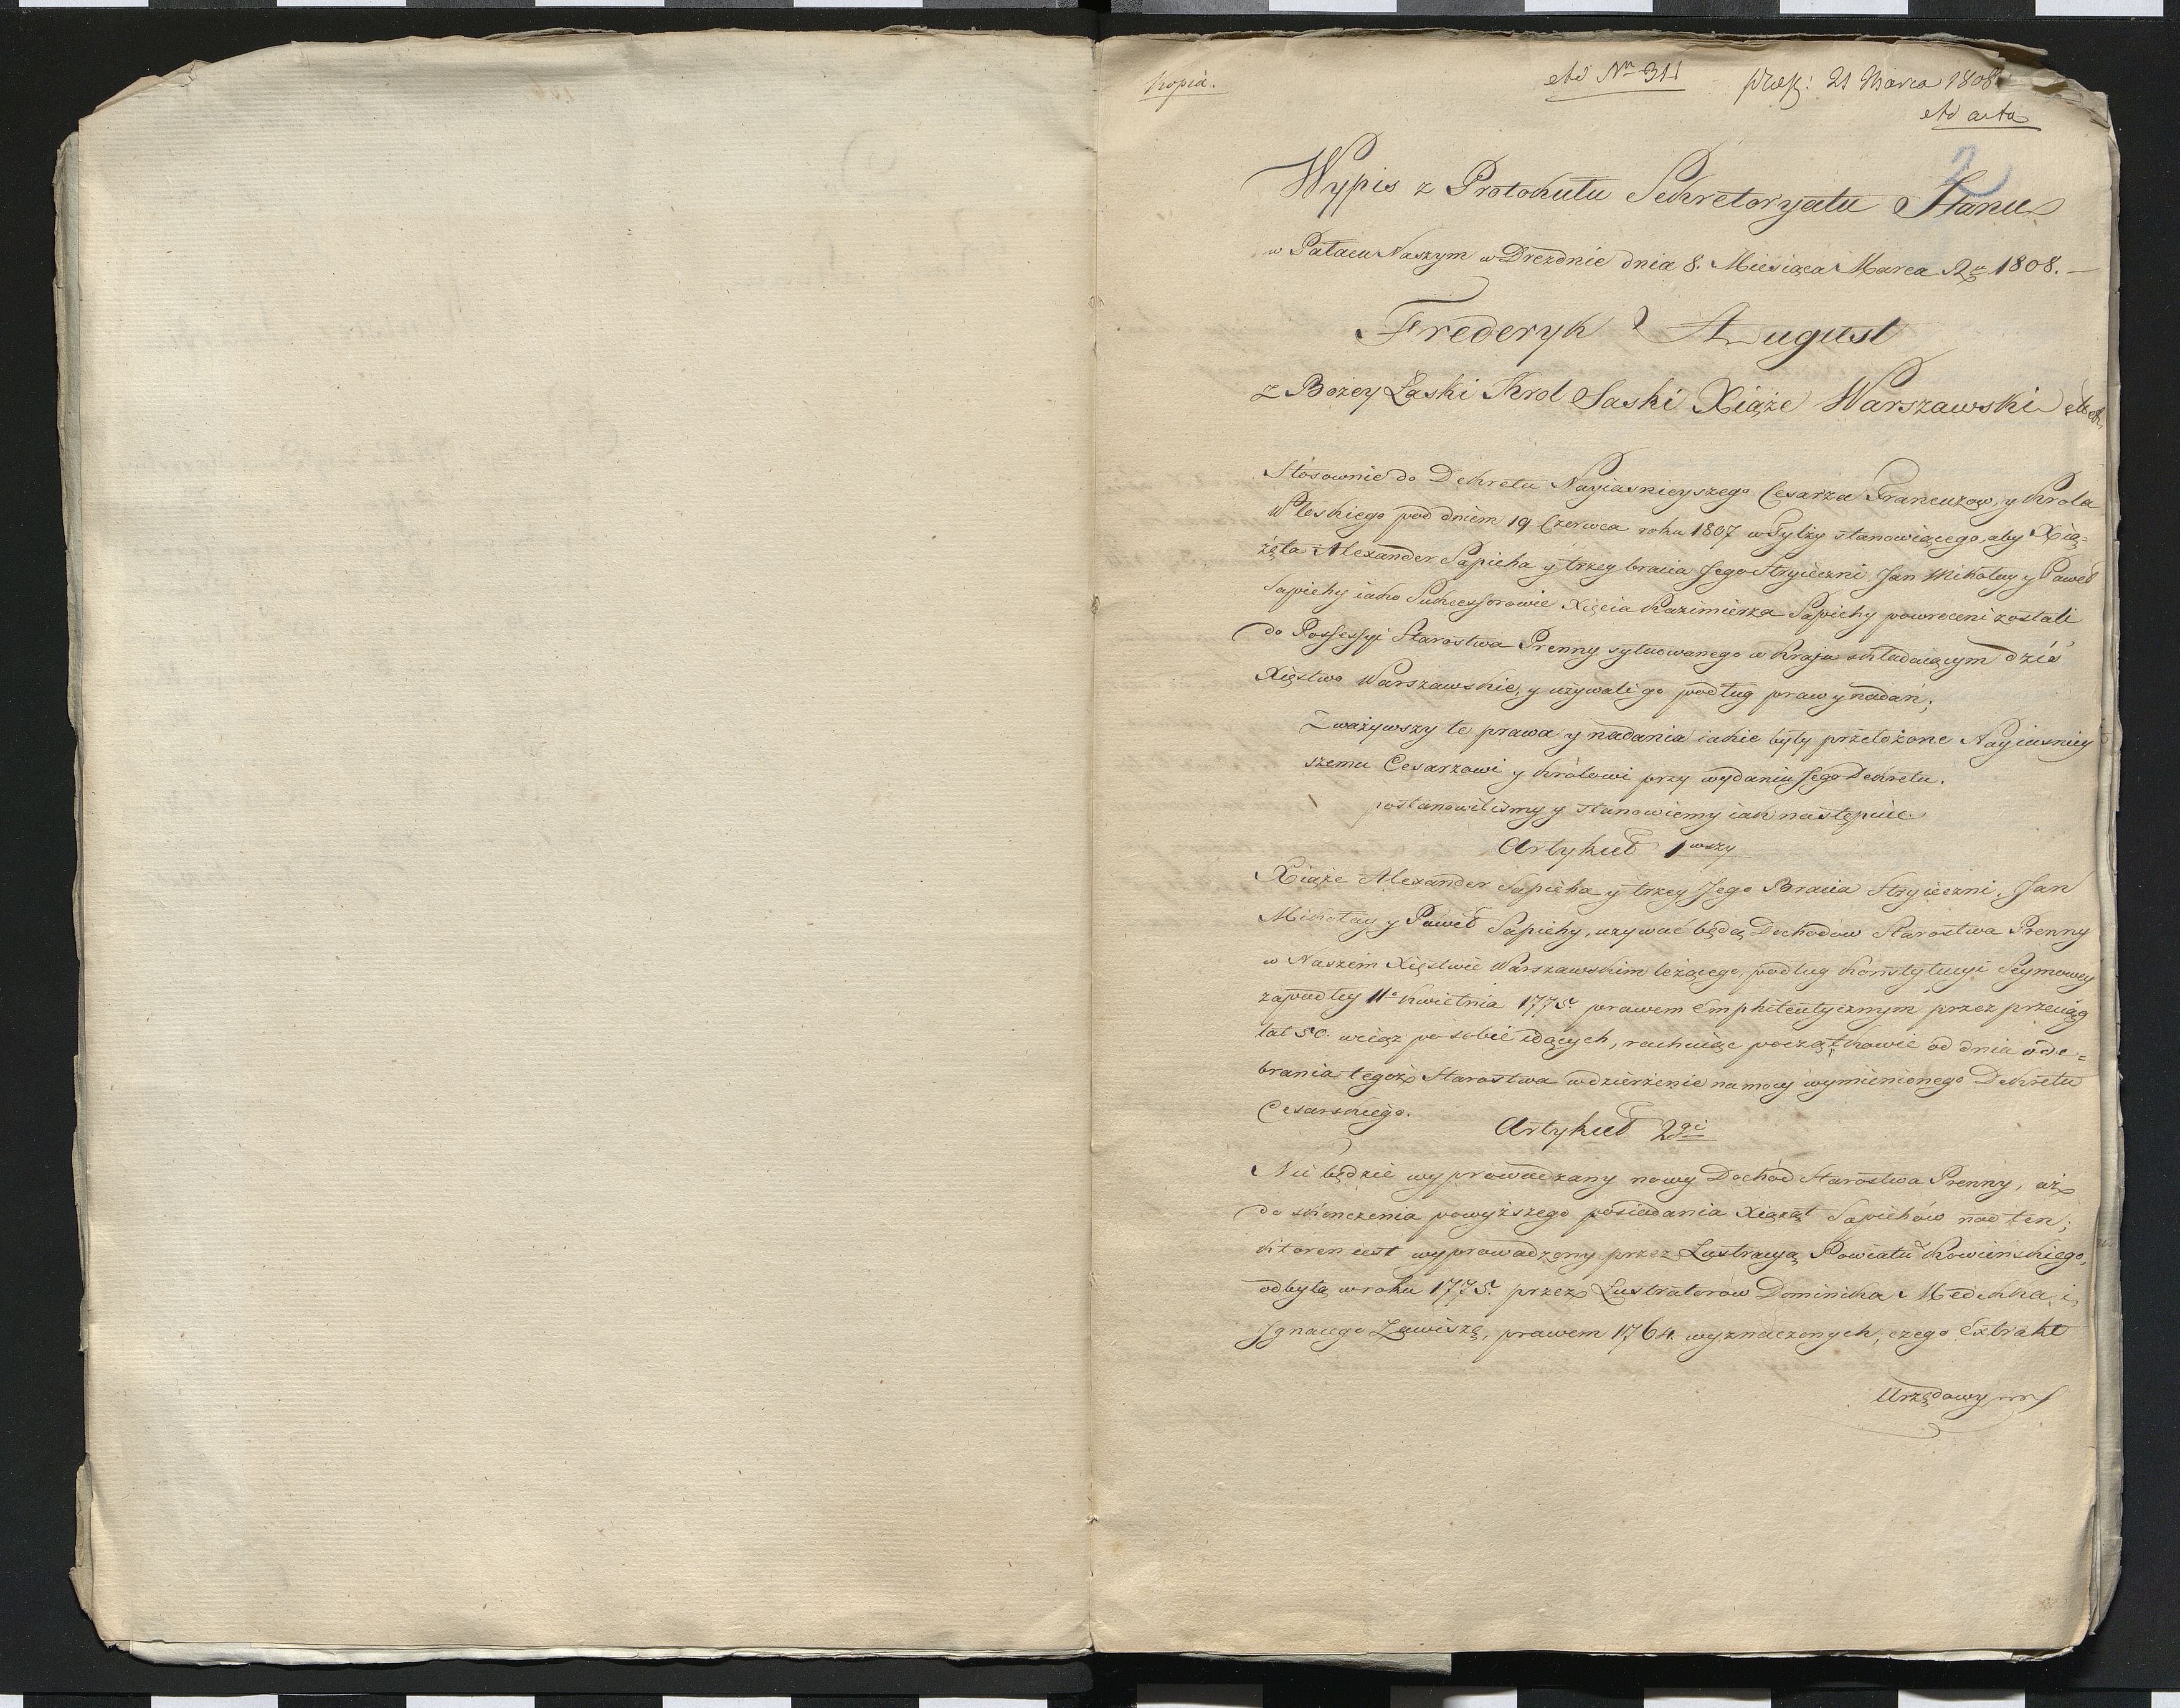 Kopia.
Ad Nr 311
praes: 21 Marca 1808
Ad acta
2
Wypis z Protokułu Sekretaryatu Stanu
w Pałacu Naszym w Dreznie dnia 8. Miesiąca Marca Ru 1808. —
Frederyk August
z Bożey Łaski Krol Saski Xiąże Warszawski etc etc.
Stosownie do Dekretu Nayiasnieyszego Cesarza Francuzow, y Krola
Włoskiego pod dniem 19 Czerwca roku 1807 w Tylży stanowiącego, aby Xią=
żęta Alexander Sapieha y trzey bracia Jego Stryieczni Jan Mikołay y Paweł
Sapiehy iako Sukcessorowie Xięcia Kazimierza Sapiehy powroceni zostali
do Possessyi Starostwa Prenny sytuowanego w Kraju składaiącym dziś
Xięstwo Warszawskie, y używali go podług praw y nadań;
Zważywszy te prawa y nadania iakie były przełożone Nayiasniey
szemu Cesarzowi y Królowi przy wydaniu Jego Dekretu.
postanowiliśmy y stanowiemy iak nastąpuie
Artykuł 1wszy
Xiąże Alexander Sapieha y trzey Jego Bracia Stryieczni, Jan
Mikołay y Paweł Sapiehy, używać będą Dochodow Starostwa Prenny
w Naszém Xięstwie Warszawskim leżącego, podług Konstytucyi Seymowey
zapadłey 11o Kwietnia 1775. prawem Emphiteutycznym przez przeciąg
lat 50. wciąz po sobie idących, rachuiąc początkowie od dnia ode=
brania tegoż Starostwa w dzierżenie na mocy wymienionego Dekretu
Cesarskiego.
Artykuł 2gi
Nie będzie wyprowadzany nowy Dochód Starostwa Prenny, aż
do skończenia powyższego posiadania Xiąząt Sapiehów nad ten;
ktoren iest wyprowadzony przez Lustracyą Powiatu Kowieńskiego,
odbytą w roku 1775. przez Lustratorow Dominika Medekka, i
Ignacego Zawiszę, prawem 1764. wyznaczonych, czego Extrakt
Urzędowy